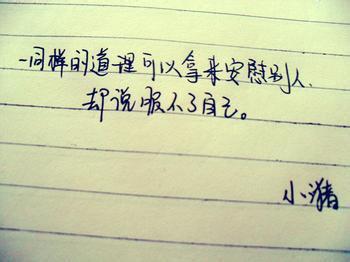 同样的道理可以拿来安慰别人.
却说服不了自己。
小猪